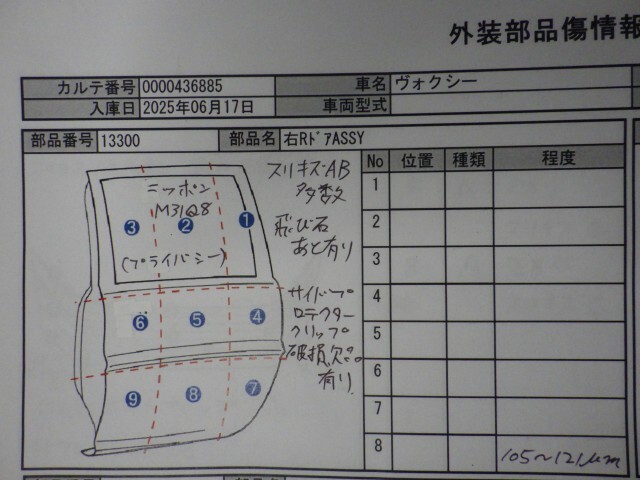 外装部品傷情報
カルテ番号 0000436885 車名 ヴォクシー
入庫日 2025年06月17日 車両型式
部品番号 13300 部品名 右RドアASSY
No 位置 種類 程度
1
2
3
4
5
6
7
8 105~121μm
ニッポン
M31Q8
③ ② ①
(プライバシー)
⑥ ⑤ ④
⑨ ⑧ ⑦
スリキズAB
多数
飛び石
あと有り
サイドプ
ロテクター
クリップ
破損欠品
有り